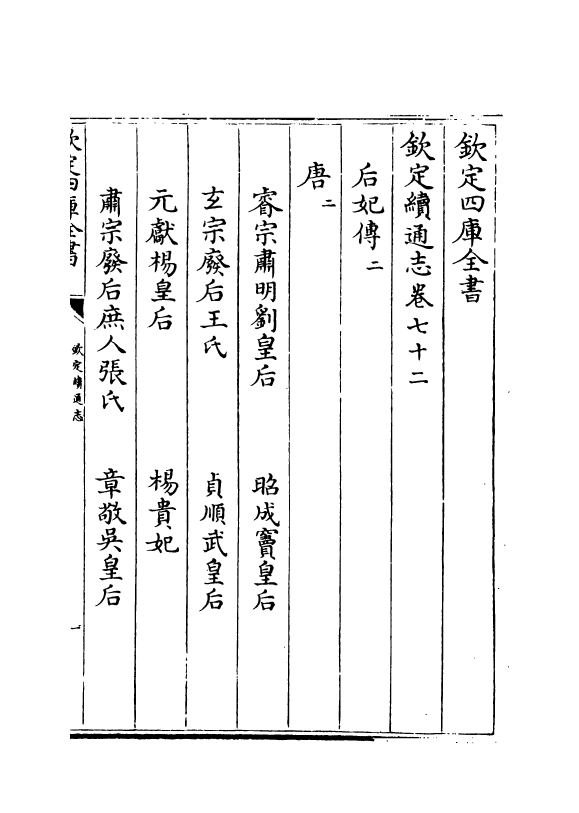 欽定四庫全書
欽定續通志卷七十二
后妃傳二
唐二
睿宗肅明劉皇后　昭成竇皇后
玄宗廢后王氏　貞順武皇后
元獻楊皇后　楊貴妃
肅宗廢后庶人張氏　章敬吳皇后
欽定四庫全書
欽定續通志
一